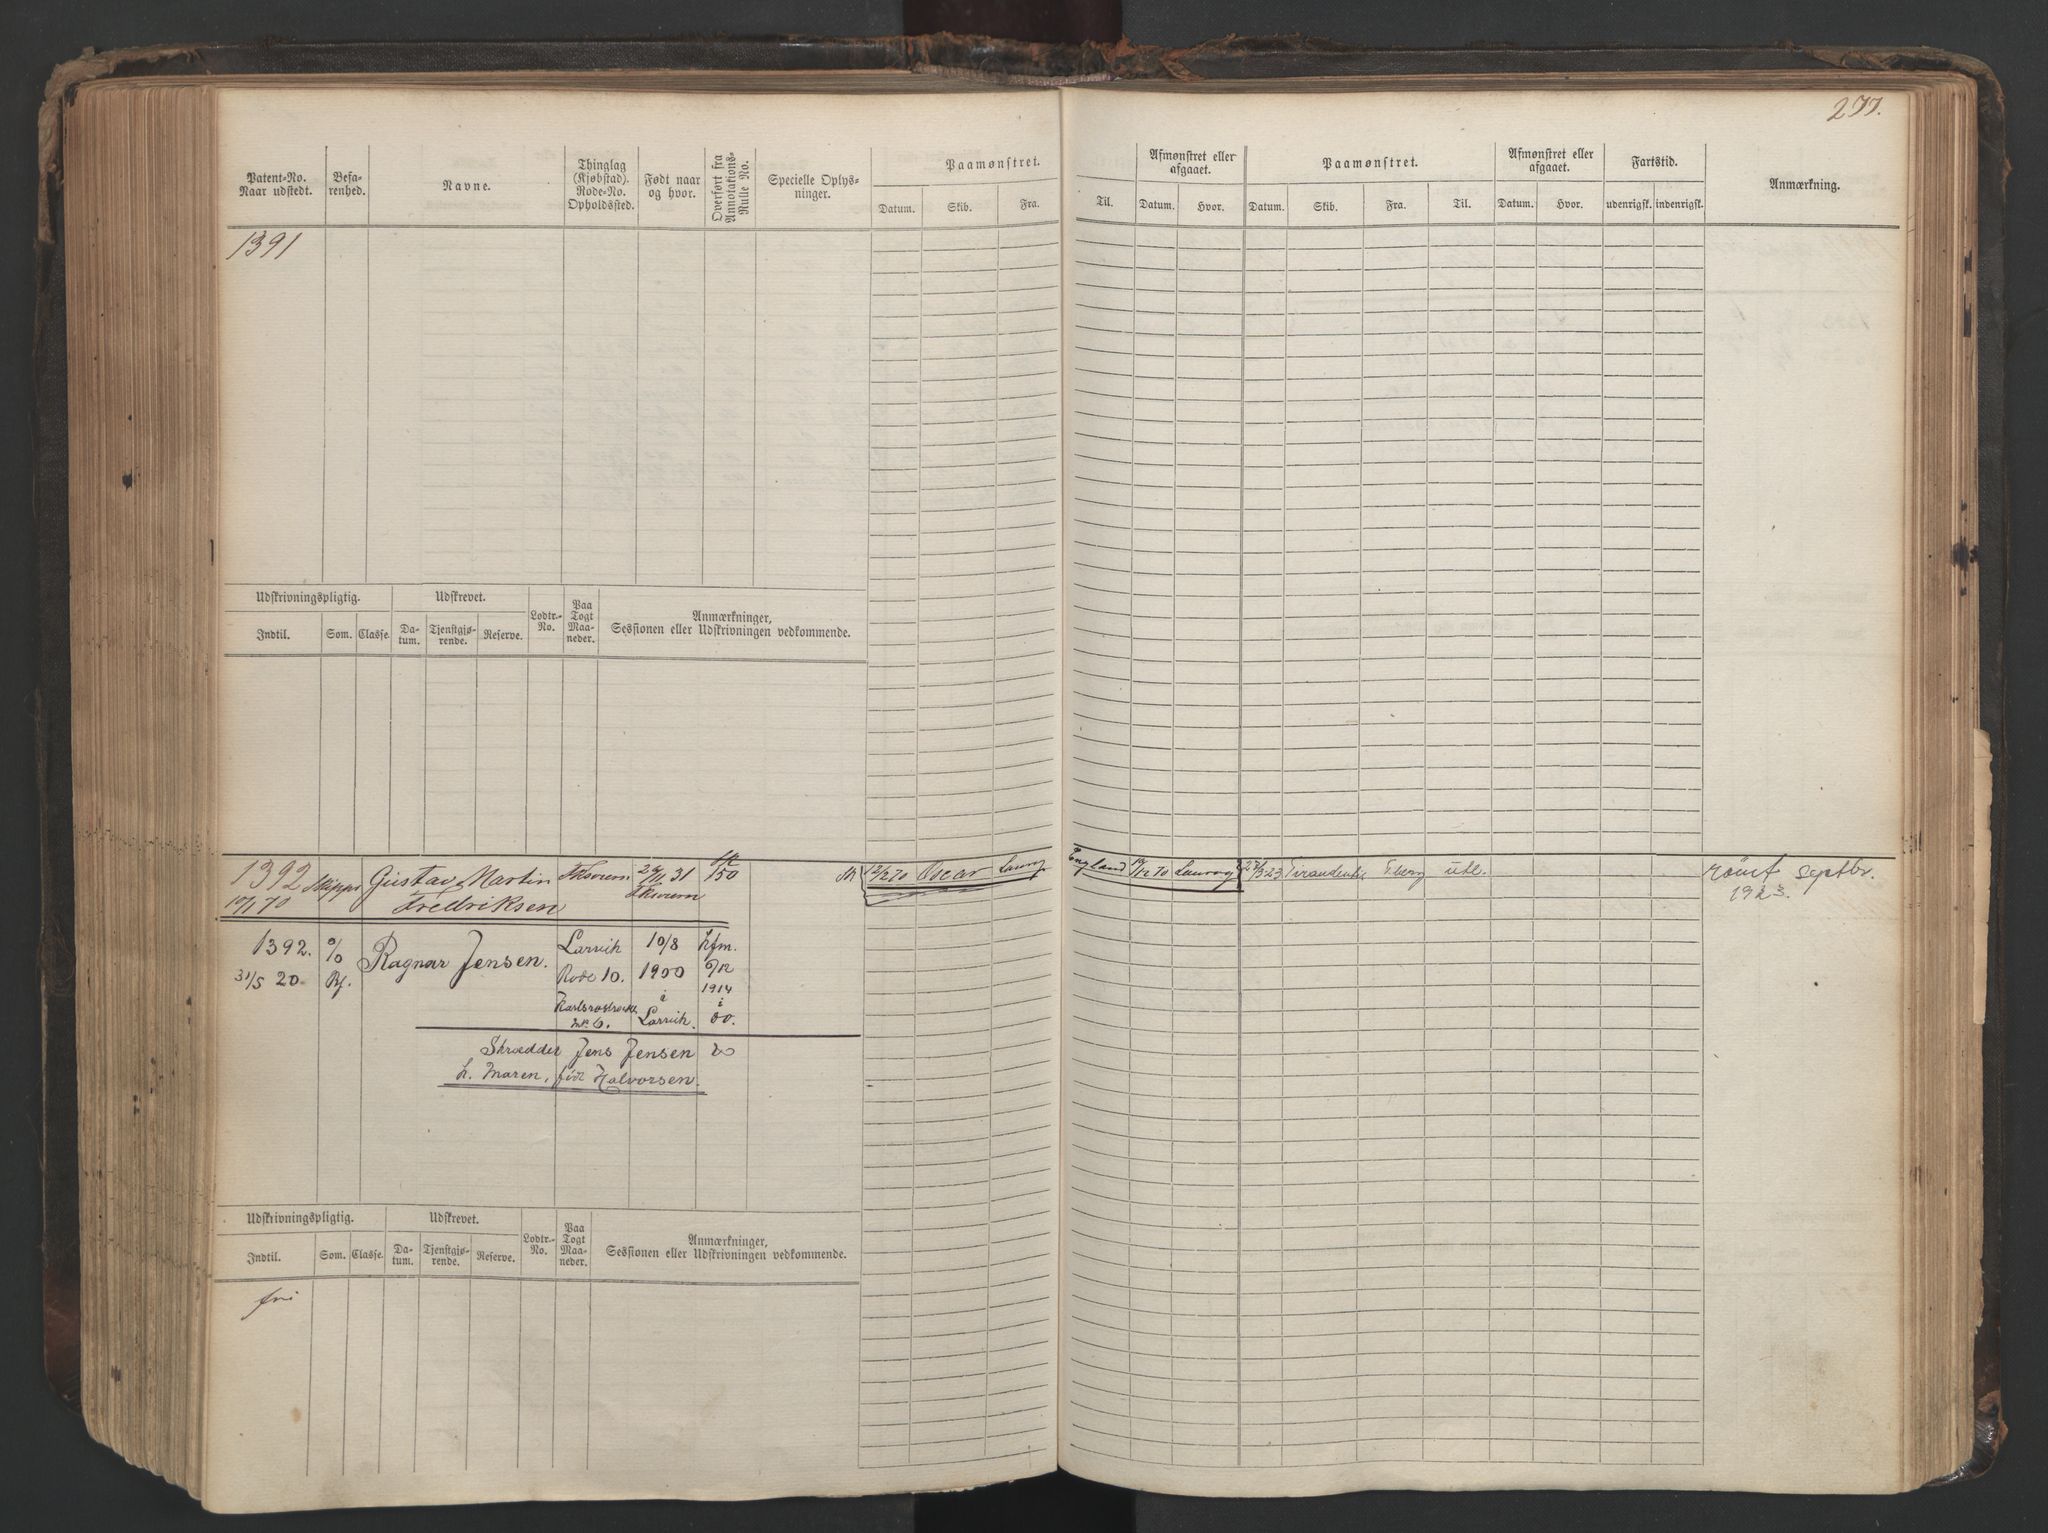 277.
Patent-No. Naar udstedt.
Befarenhed.
Navne.
Thinglag (Kjøbstad). Rode-No. Opholdssted.
Født naar og hvor.
Overført fra Annotations-Rulle No.
Specielle Oplysninger.
Paamønstret.
Datum. Skib. Fra. Til.
Afmønstret eller afgaaet.
Datum. Hvor.
Paamønstret.
Datum. Skib. Fra. Til.
Afmønstret eller afgaaet.
Datum. Hvor.
Fartstid.
udenrigsk. indenrigsk.
Anmærkning.
1391
Udskrivningspligtig. Udskrevet. Lodtr.-No. Paa Togt Maaneder. Anmærkninger, Sessionen eller Udskrivningen vedkommende.
Indtil. Som. Classe. Datum. Tjenstgjørende. Reserve.
1392 Gustav Martin 31 50 12/2 70 Oscar Laurv England 12 70 Laurvig 23 ute. rømt septbr.
70 Fredriksen 1923.
1392. Ragnar Jensen. Larvik 10/8 hfm.
31/5 20. Rode 10. 1900 6/12
1914
i i
No 6. Larvik. 00.
Skrædder Jens Jensen
h. Maren, født Halvorsen.
Udskrivningspligtig. Udskrevet. Lodtr.-No. Paa Togt Maaneder. Anmærkninger, Sessionen eller Udskrivningen vedkommende.
Indtil. Som. Classe. Datum. Tjenstgjørende. Reserve.
fri